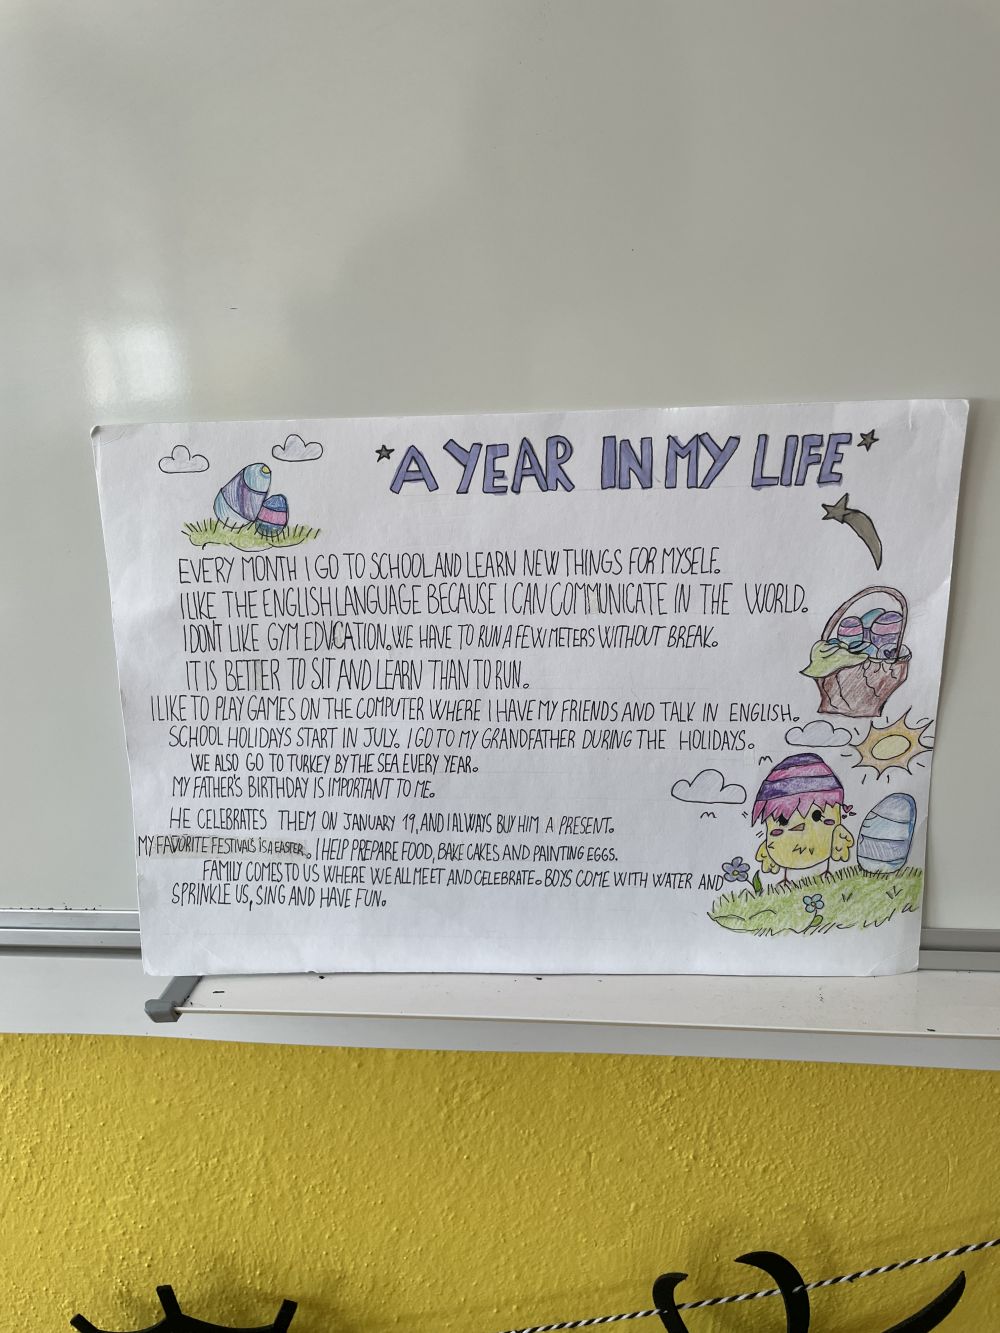 *A YEAR IN MY LIFE*
EVERY MONTH I GO TO SCHOOL AND LEARN NEW THINGS FOR MYSELF.
I LIKE THE ENGLISH LANGUAGE BECAUSE I CAN COMMUNICATE IN THE WORLD.
I DON'T LIKE GYM EDUCATION. WE HAVE TO RUN A FEW METERS WITHOUT BREAK.
IT IS BETTER TO SIT AND LEARN THAN TO RUN.
I LIKE TO PLAY GAMES ON THE COMPUTER WHERE I HAVE MY FRIENDS AND TALK IN ENGLISH.
SCHOOL HOLIDAYS START IN JULY. I GO TO MY GRANDFATHER DURING THE HOLIDAYS.
WE ALSO GO TO TURKEY BY THE SEA EVERY YEAR.
MY FATHER'S BIRTHDAY IS IMPORTANT TO ME.
HE CELEBRATES THEM ON JANUARY 19, AND I ALWAYS BUY HIM A PRESENT.
MY FAVORITE FESTIVALS IS A EASTER. I HELP PREPARE FOOD, BAKE CAKES AND PAINTING EGGS.
FAMILY COMES TO US WHERE WE ALL MEET AND CELEBRATE. BOYS COME WITH WATER AND
SPRINKLE US, SING AND HAVE FUN.